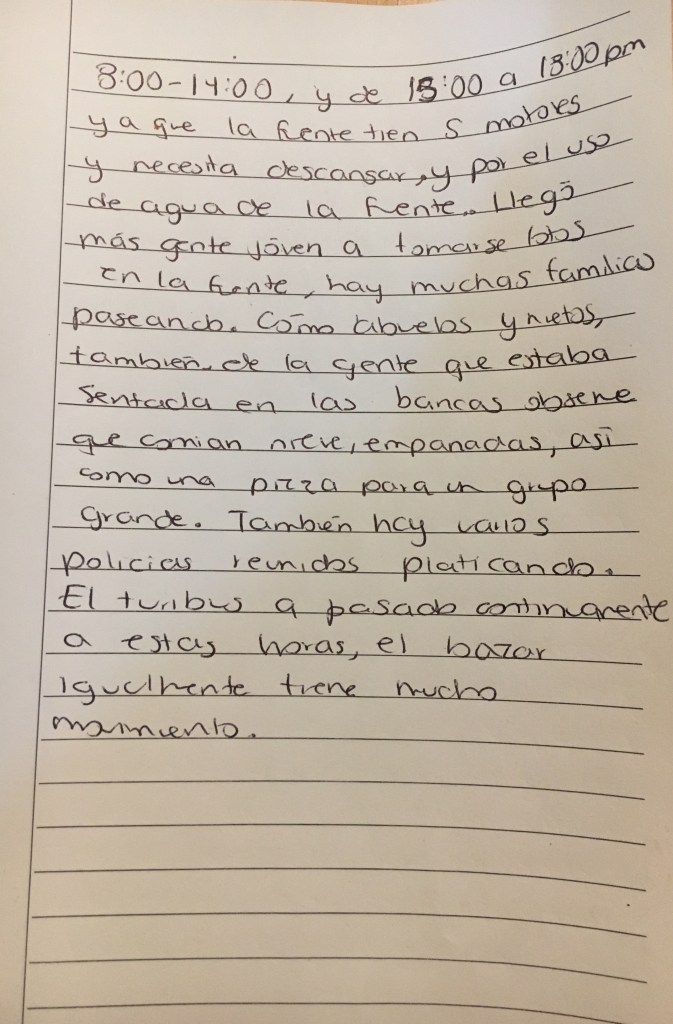 8:00-14:00, y de 15:00 a 18:00pm
ya que la fuente tien 5 motores
y necesita descansar, y por el uso
de agua de la fuente. Llegó
más gente jóven a tomarse fotos
en la fuente, hay muchas familias
paseando. Cómo abuelos y nietos,
también de la gente que estaba
sentada en las bancas observe
que comian nieve, empanadas, así
como una pizza para un grupo
grande. También hay varios
policias reunidos platicando.
El turibus a pasado continuamente
a estas horas, el bazar
igualmente tiene mucho
movimiento.